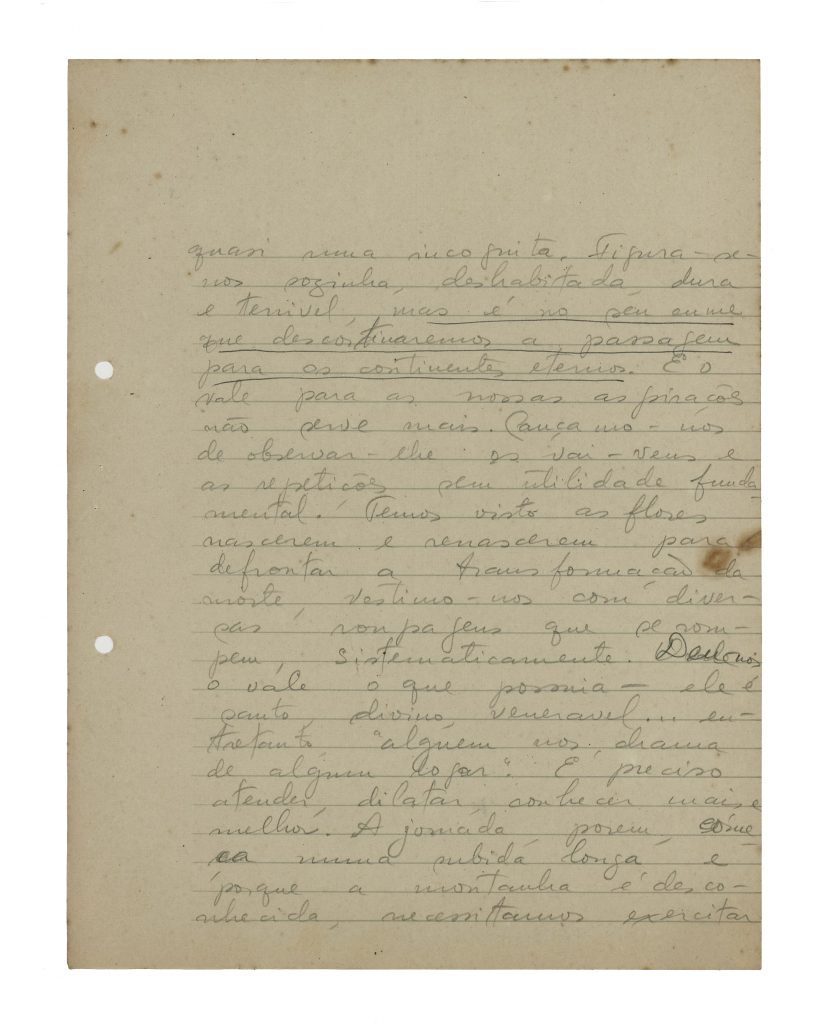 quasi uma incognita. Figura-se-
nos sozinha, deshabitada, dura
e terrivel, mas é no seu cume
que descortinaremos a passagem
para os continentes eternos. É o
vale para as nossas aspirações
não serve mais. Cançamo-nos
de observar-lhe os vai-vens e
as repetições sem utilidade funda-
mental. Temos visto as flores
nascerem e renascerem para
defrontar a transformação da
morte, vestimo-nos com diver-
sas roupagens que se rom-
pem, sistematicamente. Deu-nos
o vale o que possuia — ele é
santo, divino, veneravel... en-
tretanto, "alguem nos chama
de algum logar". É preciso
atender, dilatar, conhecer mais e
melhor. A jornada, porem, come
ça numa subida longa e
porque a montanha é desco-
nhecida, necessitamos exercitar